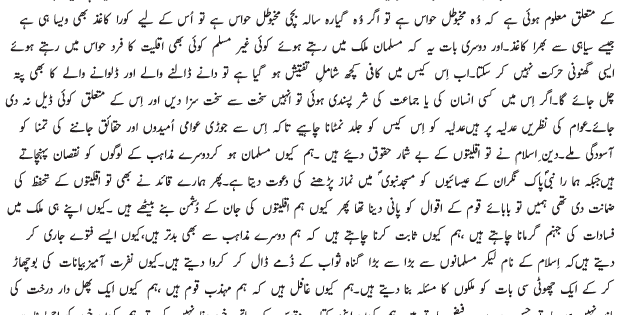 کے متعلق معلوم ہوئی ہے کہ وُہ مخبوطل حواس ہے تو اگر وُہ گیارہ سالہ بچی مخبوطل حواس ہے تو اُس کے لیے کورا کاغذ بھی ویسا ہی ہے
جیسے سیاہی سے بھرا کاغذ۔اور دوسری بات یہ کہ مسلمان ملک میں رہتے ہوئے کوئی غیر مسلم کوئی بھی اقلیت کا فرد حواس میں رہتے ہوئے
ایسی گھنونی حرکت نہیں کر سکتا۔اب اِس کیس میں کافی کچھ شاملِ تفتیش ہو گیا ہے تو دانے ڈالنے والے اور ڈلوانے والے کا بھی پتہ
چل جائے گا۔اگر اِس میں کسی انسان کی یا جماعت کی شر پسندی ہوئی تو انہیں سخت سے سخت سزا دیں اور اِس کے متعلق کوئی ڈیل نہ دی
جائے۔عوام کی نظریں عدلیہ پر ہیں عدلیہ کو اِس کیس کو جلد نمٹانا چاہیے تاکہ اِس سے جوڑی عوامی اُمیدوں اور حقائق جاننے کی تمنا کو
آسودگی ملے۔دینِ اِسلام نے تو اقلیتوں کے بے شمار حقوق دیئے ہیں ۔ہم کیوں مسلمان ہو کر دوسرے مذاہب کے لوگوں کو نقصان پہنچاتے
ہیں جبکہ ہما را نبیؐ پاک نگران کے عیسائیوں کو مسجدِنبویؐ میں نماز پڑھنے کی دعوت دیتا ہے۔پھر ہمارے قائد نے بھی تو اقلیتوں کے تحفظ کی
ضمانت دی تھی ہمیں تو بابائے قوم کے اقوال کو پانی دینا تھا پھر کیوں ہم اقلیتوں کی جان کے دُشمن بنے بیٹھے ہیں ۔کیوں اپنے ہی ملک میں
فسادات کی جہنم گرمانا چاہتے ہیں ،ہم کیوں ثابت کرنا چاہتے ہیں کہ ہم دوسرے مذاہب سے بھی بدتر ہیں،کیوں ایسے فتوے جاری کر
دیتے ہیں کہ اِسلام کے نام لیکر مسلمانوں سے بڑا سے بڑا گناہ ثواب کے ذُمے ڈال کر کروا دیتے ہیں۔کیوں نفرت آمیز بیانات کی بوچھاڑ
کر کے ایک چھوٹی سی بات کو ملکوں کا مسئلہ بنا دیتے ہیں۔ہم کیوں غافل ہیں کہ ہم مہذب قوم ہیں ،ہم کیوں ایک پھل دار درخت کی